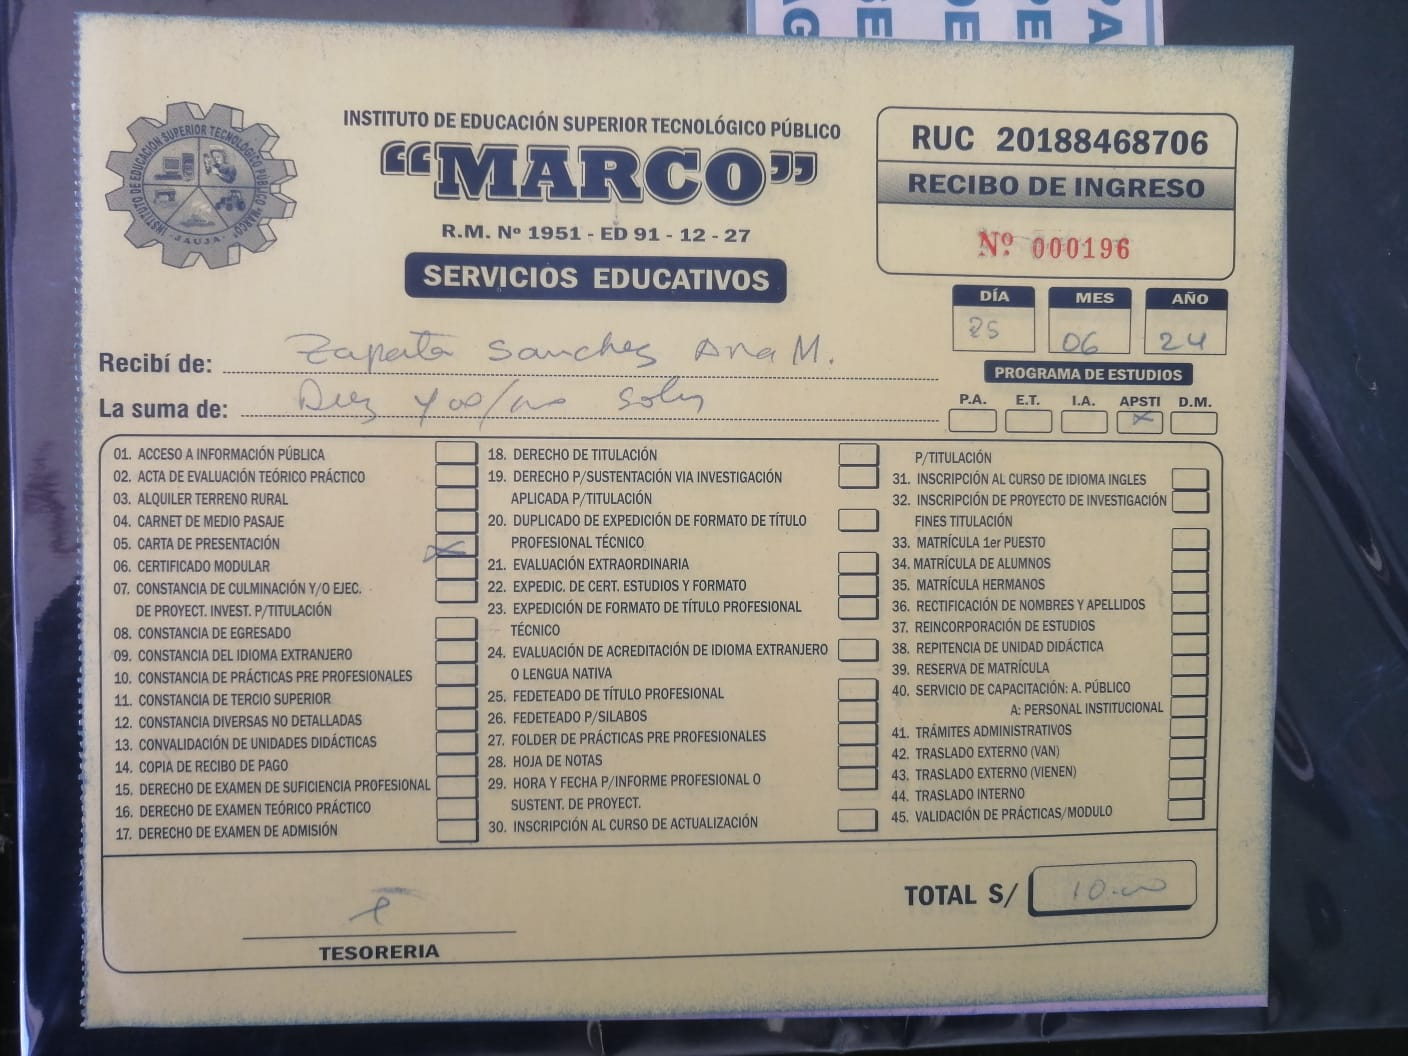 PA
PE
DE
SE
AG
INSTITUTO DE EDUCACIÓN SUPERIOR TECNOLÓGICO PÚBLICO "MARCO"
- JAUJA -
INSTITUTO DE EDUCACIÓN SUPERIOR TECNOLÓGICO PÚBLICO
“MARCO”
R.M. Nº 1951 - ED 91 - 12 - 27
SERVICIOS EDUCATIVOS
RUC 20188468706
RECIBO DE INGRESO
Nº 000196
DÍA MES AÑO
25 06 24
Recibí de: Zapata Sanchez Ana M.
La suma de: Diez y 00/100 Soles
PROGRAMA DE ESTUDIOS
P.A. E.T. I.A. APSTI D.M.
01. ACCESO A INFORMACIÓN PÚBLICA
02. ACTA DE EVALUACIÓN TEÓRICO PRÁCTICO
03. ALQUILER TERRENO RURAL
04. CARNET DE MEDIO PASAJE
05. CARTA DE PRESENTACIÓN
06. CERTIFICADO MODULAR
07. CONSTANCIA DE CULMINACIÓN Y/O EJEC.
DE PROYECT. INVEST. P/TITULACIÓN
08. CONSTANCIA DE EGRESADO
09. CONSTANCIA DEL IDIOMA EXTRANJERO
10. CONSTANCIA DE PRÁCTICAS PRE PROFESIONALES
11. CONSTANCIA DE TERCIO SUPERIOR
12. CONSTANCIA DIVERSAS NO DETALLADAS
13. CONVALIDACIÓN DE UNIDADES DIDÁCTICAS
14. COPIA DE RECIBO DE PAGO
15. DERECHO DE EXAMEN DE SUFICIENCIA PROFESIONAL
16. DERECHO DE EXAMEN TEÓRICO PRÁCTICO
17. DERECHO DE EXAMEN DE ADMISIÓN
18. DERECHO DE TITULACIÓN
19. DERECHO P/SUSTENTACIÓN VIA INVESTIGACIÓN
APLICADA P/TITULACIÓN
20. DUPLICADO DE EXPEDICIÓN DE FORMATO DE TÍTULO
PROFESIONAL TÉCNICO
21. EVALUACIÓN EXTRAORDINARIA
22. EXPEDIC. DE CERT. ESTUDIOS Y FORMATO
23. EXPEDICIÓN DE FORMATO DE TÍTULO PROFESIONAL
TÉCNICO
24. EVALUACIÓN DE ACREDITACIÓN DE IDIOMA EXTRANJERO
O LENGUA NATIVA
25. FEDETEADO DE TÍTULO PROFESIONAL
26. FEDETEADO P/SILABOS
27. FOLDER DE PRÁCTICAS PRE PROFESIONALES
28. HOJA DE NOTAS
29. HORA Y FECHA P/INFORME PROFESIONAL O
SUSTENT. DE PROYECT.
30. INSCRIPCIÓN AL CURSO DE ACTUALIZACIÓN
P/TITULACIÓN
31. INSCRIPCIÓN AL CURSO DE IDIOMA INGLES
32. INSCRIPCIÓN DE PROYECTO DE INVESTIGACIÓN
FINES TITULACIÓN
33. MATRÍCULA 1er PUESTO
34. MATRÍCULA DE ALUMNOS
35. MATRÍCULA HERMANOS
36. RECTIFICACIÓN DE NOMBRES Y APELLIDOS
37. REINCORPORACIÓN DE ESTUDIOS
38. REPITENCIA DE UNIDAD DIDÁCTICA
39. RESERVA DE MATRÍCULA
40. SERVICIO DE CAPACITACIÓN: A. PÚBLICO
A: PERSONAL INSTITUCIONAL
41. TRÁMITES ADMINISTRATIVOS
42. TRASLADO EXTERNO (VAN)
43. TRASLADO EXTERNO (VIENEN)
44. TRASLADO INTERNO
45. VALIDACIÓN DE PRÁCTICAS/MODULO
TOTAL S/ 10.00
TESORERIA